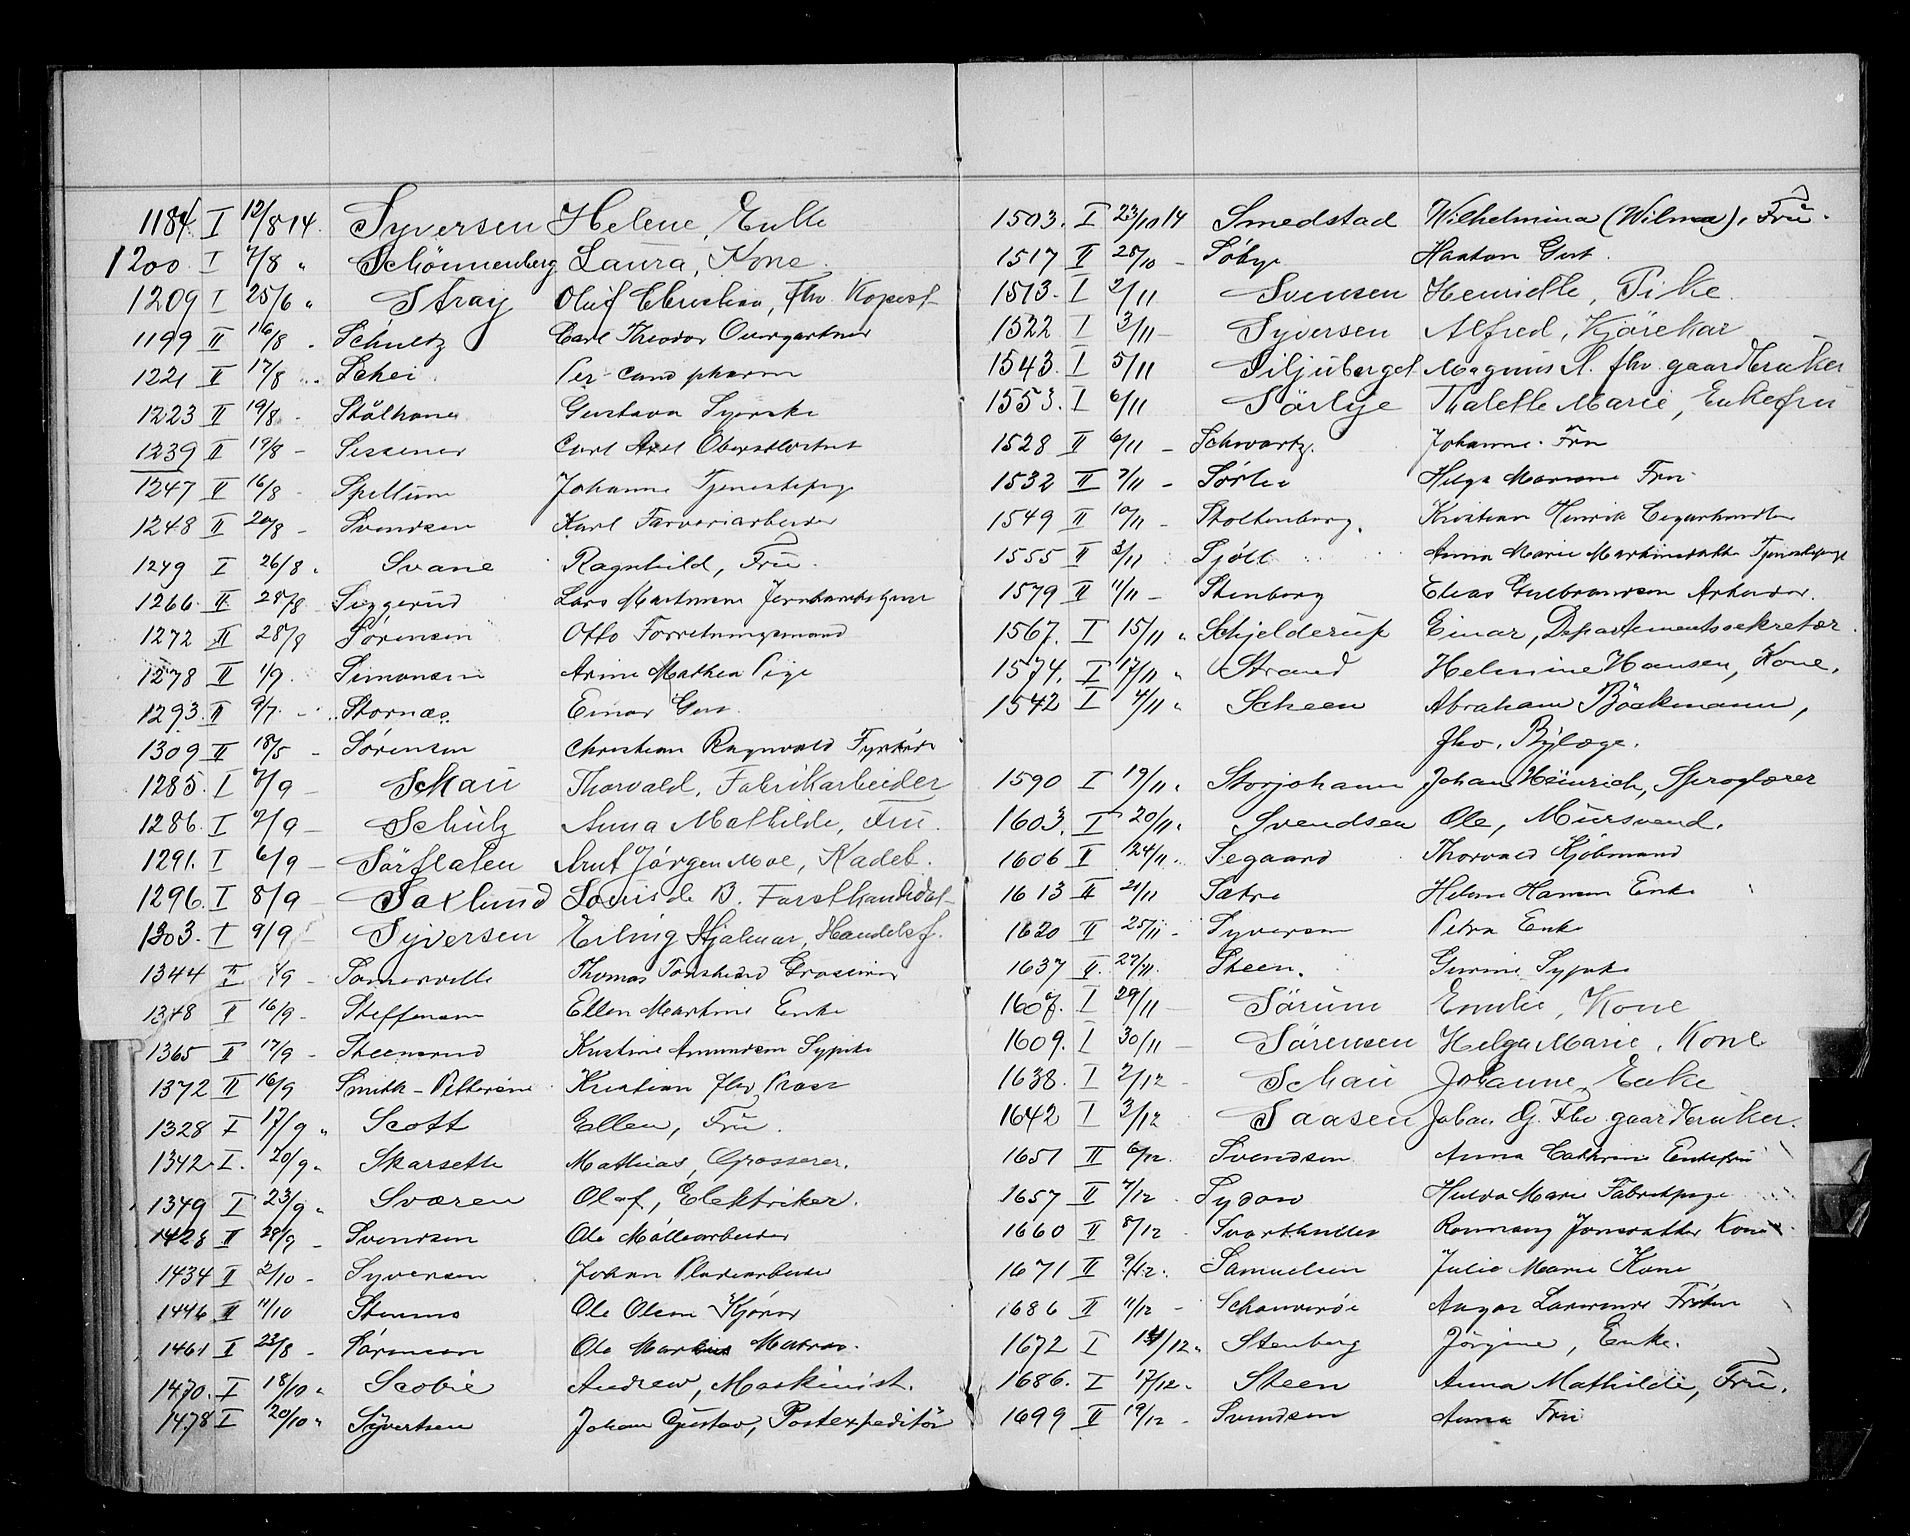 1184 I 12/8 14. Syversen Helene, Enke
1200 I 7/8 " Schönnenberg Laura, Kone.
1209 I 25/6 " Stray Oluf Christian, fhv. Kopist
1199 II 16/8 " Schultz Carl Theodor Overgartner
1221 II 17/8 " Schei Per cand pharm
1223 II 19/8 - Stålhane Gustava Syerske
1239 II 19/8 - Sissener Carl Axel Oberstløitnt
1247 II 16/8 - Spillum Johanne Tjenestepige
1248 II 20/8 - Svendsen Karl Farveriarbeider
1249 I 26/8 " Svane Ragnhild, Frü.
1266 II 28/8 Siggerud Lars Martinsen
1272 II 28/8 Sørensen Otto Forretningsmand
1278 II 1/9 - Simonsen Mathea Pige
1293 II 9/7 - Stornæs Einar Gut
1309 II 18/5 - Sørensen Christian Ragnvald Fyrbøder
1285. I 7/9 - Skau Thorvald, Fabrikarbeider
1286. I 7/9 - Schulz Anna Mathilde, Frü.
1291. I 6/9 - Sörflaten Arnt Jörgen Moe, Kadet.
1296. I 8/9 - Saxlund Louis de B. Forstkandidat
1303. I 9/9 - Syversen Erling Hjalmar, Handelsf.
1344 II 7/9 - Somerville Thomas Grosserer
1348 II 16/9 - Steffensen Ellen Martine Enke
1365 II 17/9 - Steensrud Kristine Amundsen Sypike
1372 II 16/9 Smith-Pettersen Kristian fhv.
1328 I 17/9 " Scott Ellen, Frü.
1342 I. 20/9 " Skarseth Mathias, Grosserer.
1349 I 23/9 " Sværen Olaf, Elektriker.
1428 II 28/9 - Svendsen Ole Møllearbeider
1434 II 2/10 - Syversen Johan Pladearbeider
1446 II 11/10 Stenmo Ole Olsen Kjører
1461 II 23/8 - Sørensen Ole Markus Matros.
1470. I 18/10 " Scobie Andrew, Maskinist.
1478 I 20/10 " Syvertsen Johan Gustav, Postexpeditör
1503. I 23/10 14 Smedstad Wilhelmina (Wilma), Frü.
1517 II 28/10 - Søbye Haakon Gut.
1513. I 2/11 Svensen Henriette, Pike.
1522 I 3/11 - Syversen Alfred, Kjörekar
1543. I 5/11 Siljuberget Magnus A. fhv. gaardbruker
1553. I 6/11 Sörlye Thalette Marie, Enkefru
1528 II 6/11 - Schwartz. Johanne. Fru
1532 II 7/11 - Sørlie Helga Mariane Fru
1549 II 10/11 - Stoltenberg. Kristian Henrik Cigarhandler
1555 II 3/11 Sjöll Anna Marie Martinsdatter Tjenestepige
1579 II 11/11 - Stenberg Elias Gulbrandsen Arbeider.
1567. I 15/11 " Schjelderup Einar, Departementssekretær.
1574. I 17/11 " Strand Helmine Hansen, Kone.
1542 I 4/11 " Scheen Abraham Böckmann,
fhv. Bylæge.
1590 I 19/11 " Storjohann Johan Heinrich, Sproglærer
1603. I 20/11 " Svendsen Ole, Mursvend.
1606 II 24/11 " Segaard Thorvald Kjøbmand
1613 II 21/11 Sætre Helene Hansen Enke
1620 II 25/11 - Syversen Petra Enke
1637 II. 27/11. Steen. Gurine Sypike
1607. I 29/11 Sörum Emilie, Kone
1609. I 30/11 - Sörensen Helga Marie, Kone
1638. I 2/12 - Schau Johanne, Enke
1642 I 3/12 Saasen Johan G. Fhv gaardbruker.
1651 II 6/12. Svendsen Anna Cathrine Enkefru
1657 II 7/12 - Sydow Hulda Marie Fabrikpige
1660 II 8/12 Svarthullet Ronnaug Jonsdatter Kone
1671 II 9/12. Samuelsen Julie Marie Kone
1686 II 11/12 - Aagot Laurense Frøken
1672 I 14/12 " Stenberg Jörgine, Enke.
1686. I 17/12 " Steen Anna Mathilde, Frü.
1699 II 19/12 - Svendsen Anna Fru